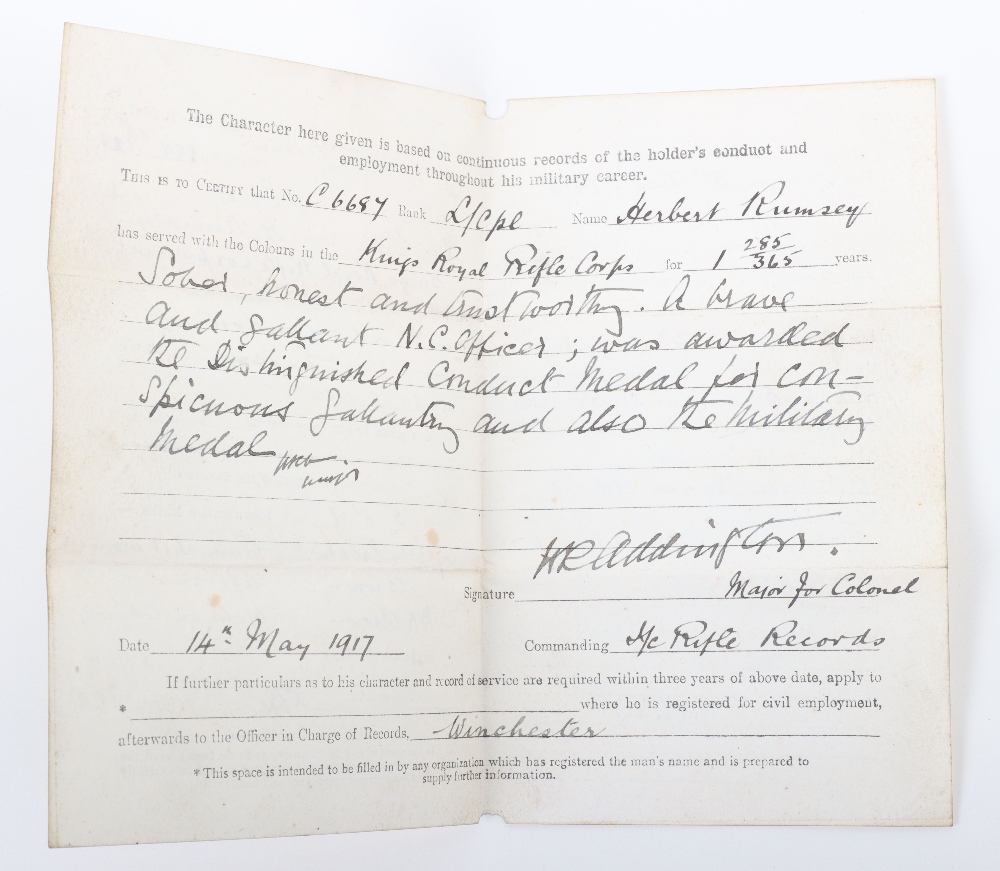 The Character here given is based on continuous records of the holder's conduct and
employment throughout his military career.
This is to Certify that No. C 6687 Rank L/Cpl Name Herbert Rumsey
has served with the Colours in the Kings Royal Rifle Corps for 1 285/365 years.
Sober, honest and trustworthy. A brave
and gallant N.C. Officer; was awarded
the Distinguished Conduct Medal for con-
spicuous gallantry and also the Military
Medal
Signature HR Addington.
Major for Colonel
Date 14th May 1917 Commanding I/c Rifle Records
If further particulars as to his character and record of service are required within three years of above date, apply to
* where he is registered for civil employment,
afterwards to the Officer in Charge of Records, Winchester
* This space is intended to be filled in by any organization which has registered the man's name and is prepared to
supply further information.